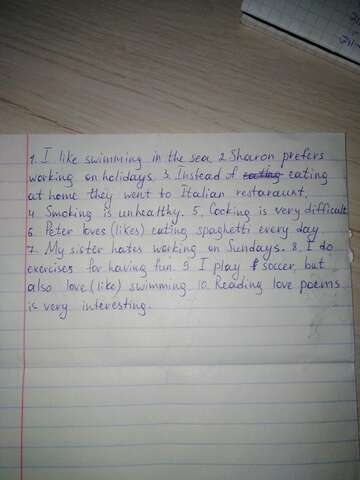 1. I like swimming in the sea. 2. Sharon prefers
working on holidays. 3. Instead of eating eating
at home they went to Italian restaraunt.
4. Smoking is unhealthy. 5. Cooking is very difficult
6. Peter loves (likes) eating spaghetti every day
7. My sister hates working on Sundays. 8. I do
exercises for having fun. 9. I play soccer, but
also love (like) swimming. 10. Reading love poems
is very interesting.